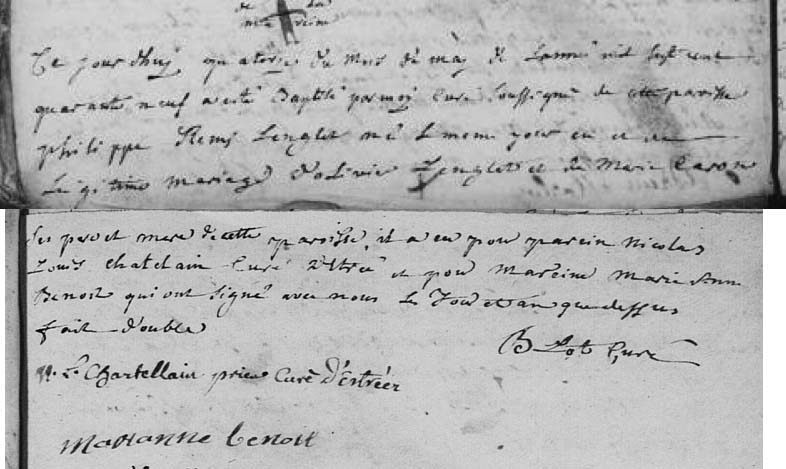 de la
marreine
Ce jourdhuy quatorze du mois de may de lannee mil sept cent
quarante neuf a esté Baptisé par moy Curé soussigné de cette paroisse
philippe Remy Lenglet né le meme jour en et de
legitime mariage d'olivier Lenglet et de Marie Caron
ses pere et mere de cette paroisse, il a eu pour parein Nicolas
Louis Chatelain Curé d'Etreé et pour Mareine Marie Anne
Benoit qui ont signé avec nous les Jour et an que dessus
fait double
Blot Curé
N. L. Chartellain prieur Curé d'Estréez
marianne benoit